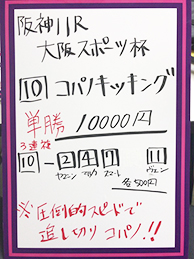 阪神11R
大阪スポーツ杯
10 コパノキッキング
単勝 10000円
3連複
10-2 4 7 11
ヤエン マテリア スマート ヴェン
各500円
※圧倒的スピードで
追し切りコパノ!!